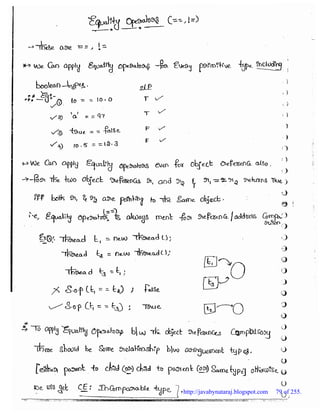 Equality Operators (==, !=)
→ These are ==, !=
→ We Can apply Equality operators for Every primitive type including
boolean-types. o/p
Eg:- ① 10 == 10.0 T ✓
✓ 2) 'a' == 97 T ✓
✓ 3) true == false F ✓
✓ 4) 10.5 == 12.3 F ✓
→ We Can apply Equality operators even for object references also.
→ For The two object references r1 and r2 if r1 == r2 returns True
iff both r1 & r2 are pointing to The Same object.
i.e, Equality operator (==) is always meant for reference/address Comparision
Eg①: Thread t1 = new Thread();
Thread t2 = new Thread();
Thread t3 = t1;
✗ S.o.p (t1 == t2); False
✓ S.o.p (t1 == t3); True
t1
t3
t2
→ To apply Equality operators b/w The object references Compulsory
There should be Some relationship b/w assignment types.
[either parent to child (or) child to parent (or) Same type] otherwise
we will get CE: InComparable type
http://javabynataraj.blogspot.com 79 of 255.